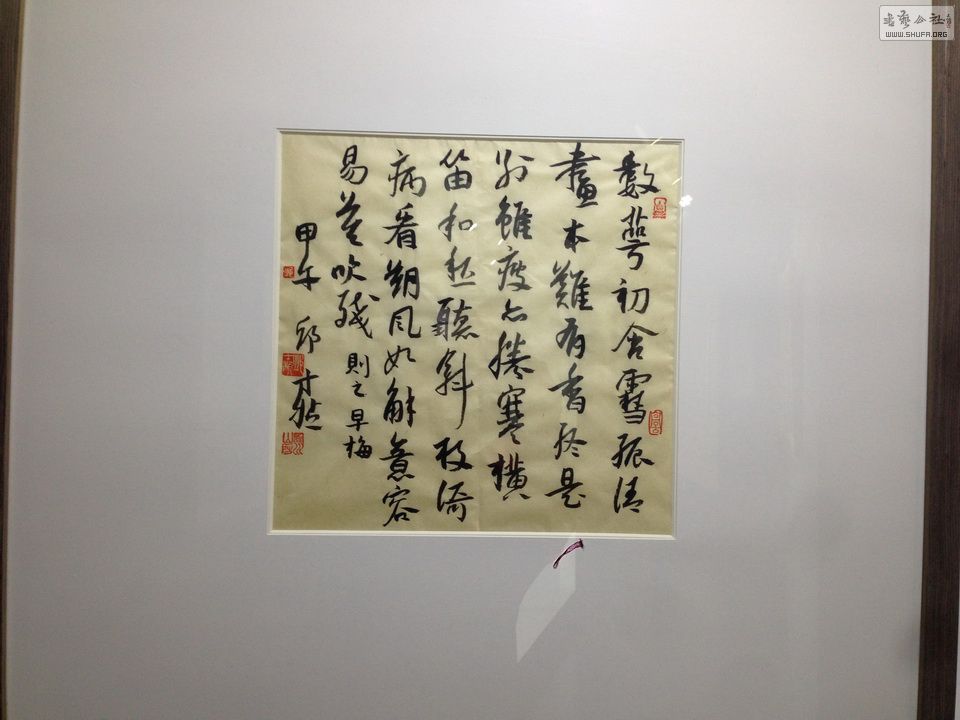 數萼初含雪孤清
畫本難有香終是
別雖瘦亦勝寒橫
笛和愁聽斜枝倚
病看朔風如解意容
易莫吹殘 則之早梅
甲午 邱才楨
書藝公社
WWW.SHUFA.ORG